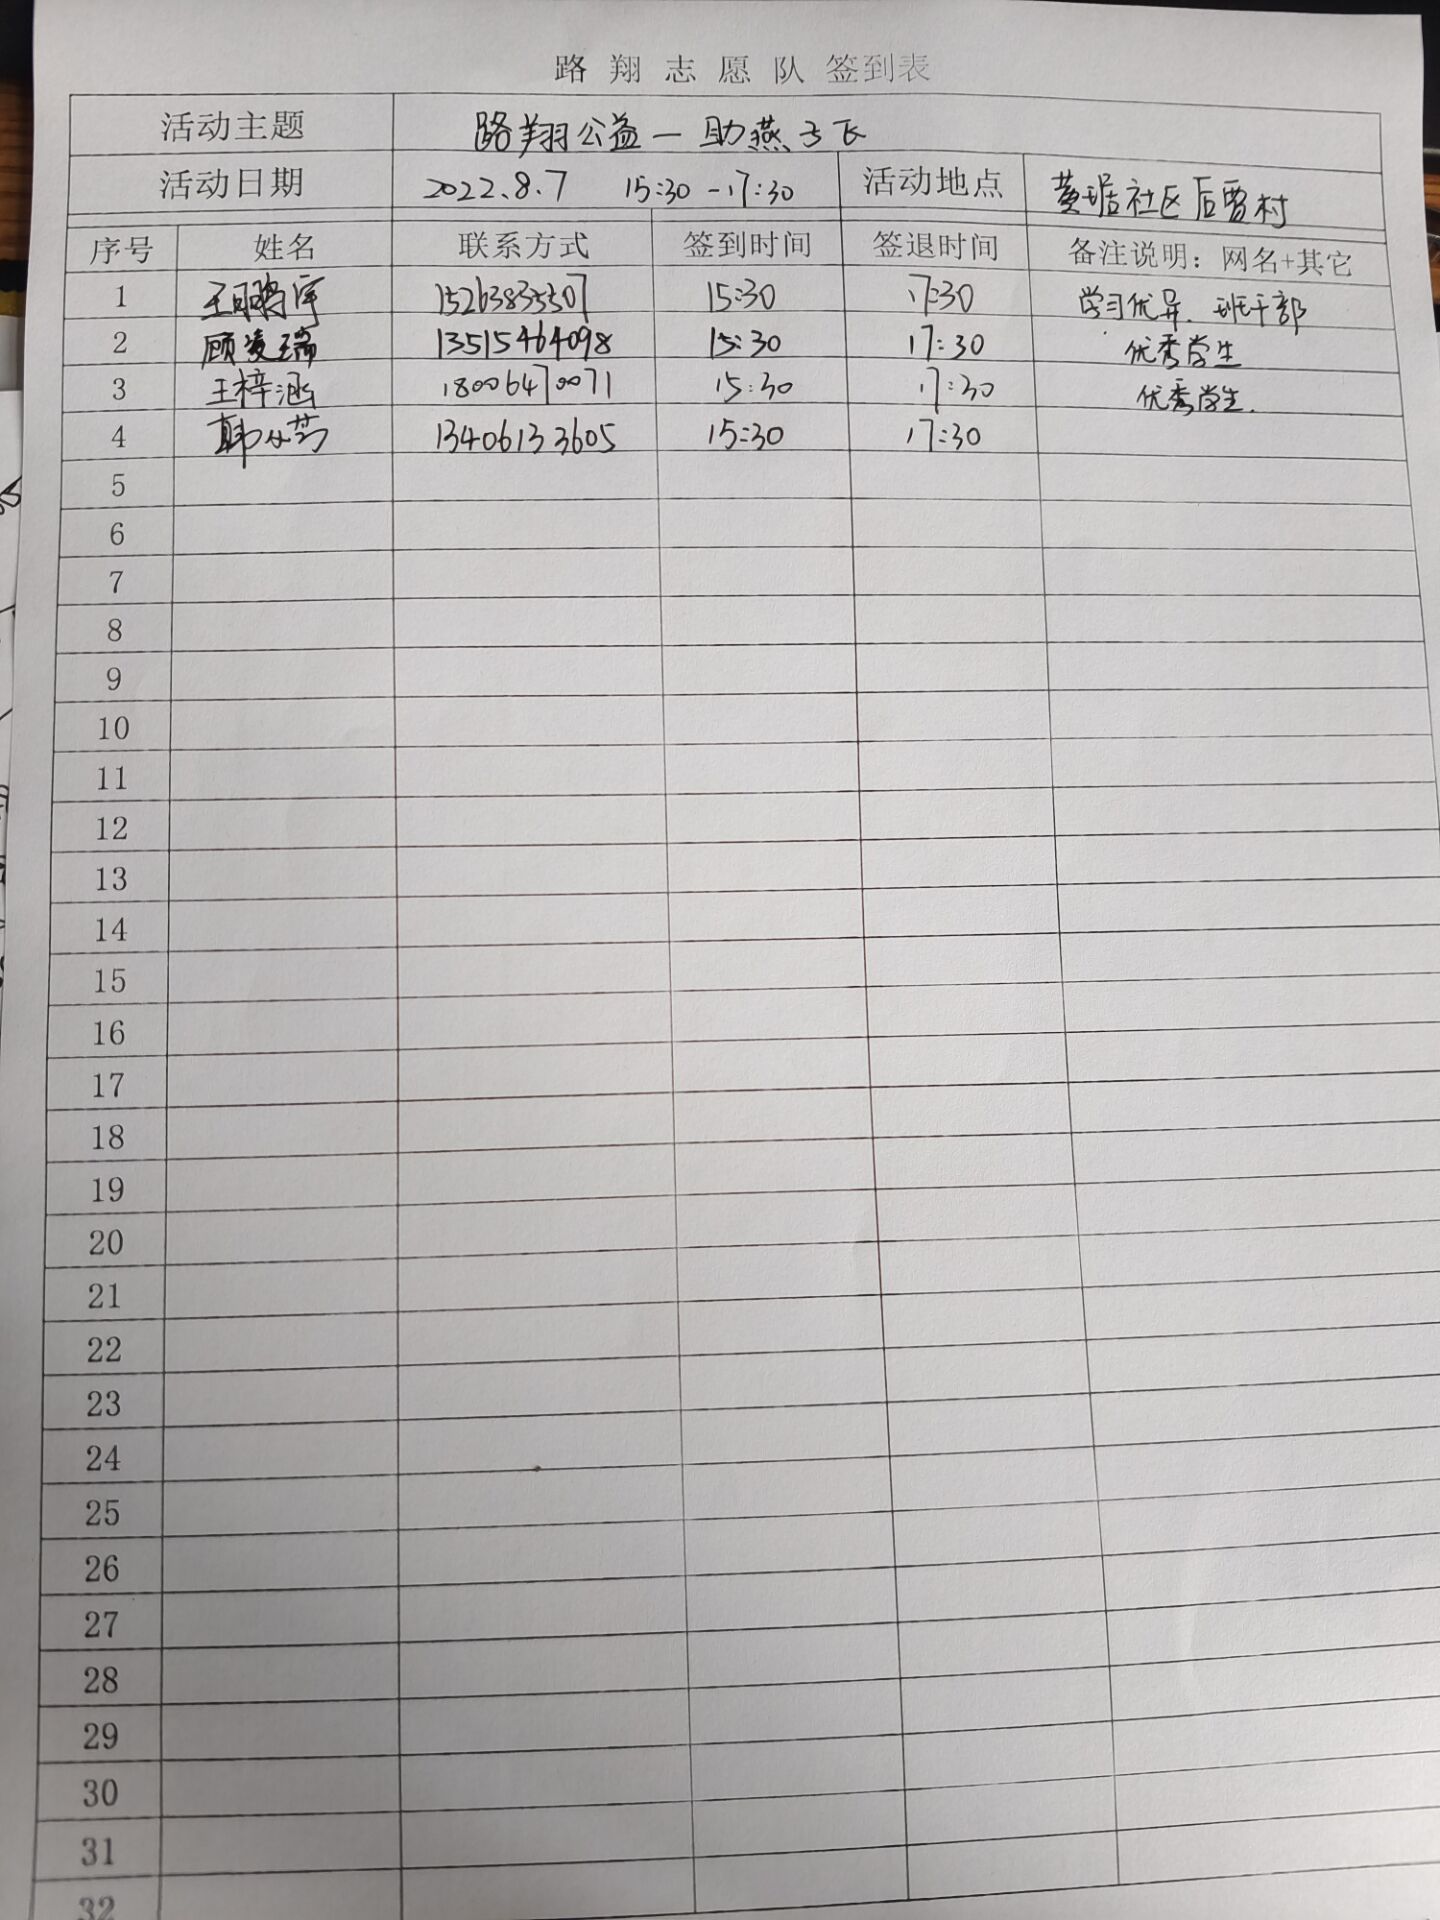 路 翔 志 愿 队 签到表
活动主题 路翔公益一助燕子飞
活动日期 2022.8.7 15:30-17:30 活动地点 黄琚社区后曹村
序号 姓名 联系方式 签到时间 签退时间 备注说明：网名+其它
1 王鹏宇 15263835507 15:30 17:30 学习优异、班干部
2 顾凌瑞 13515464098 15:30 17:30 优秀学生
3 王梓涵 18006470071 15:30 17:30 优秀学生.
4 韩 13406133605 15:30 17:30
5
6
7
8
9
10
11
12
13
14
15
16
17
18
19
20
21
22
23
24
25
26
27
28
29
30
31
32